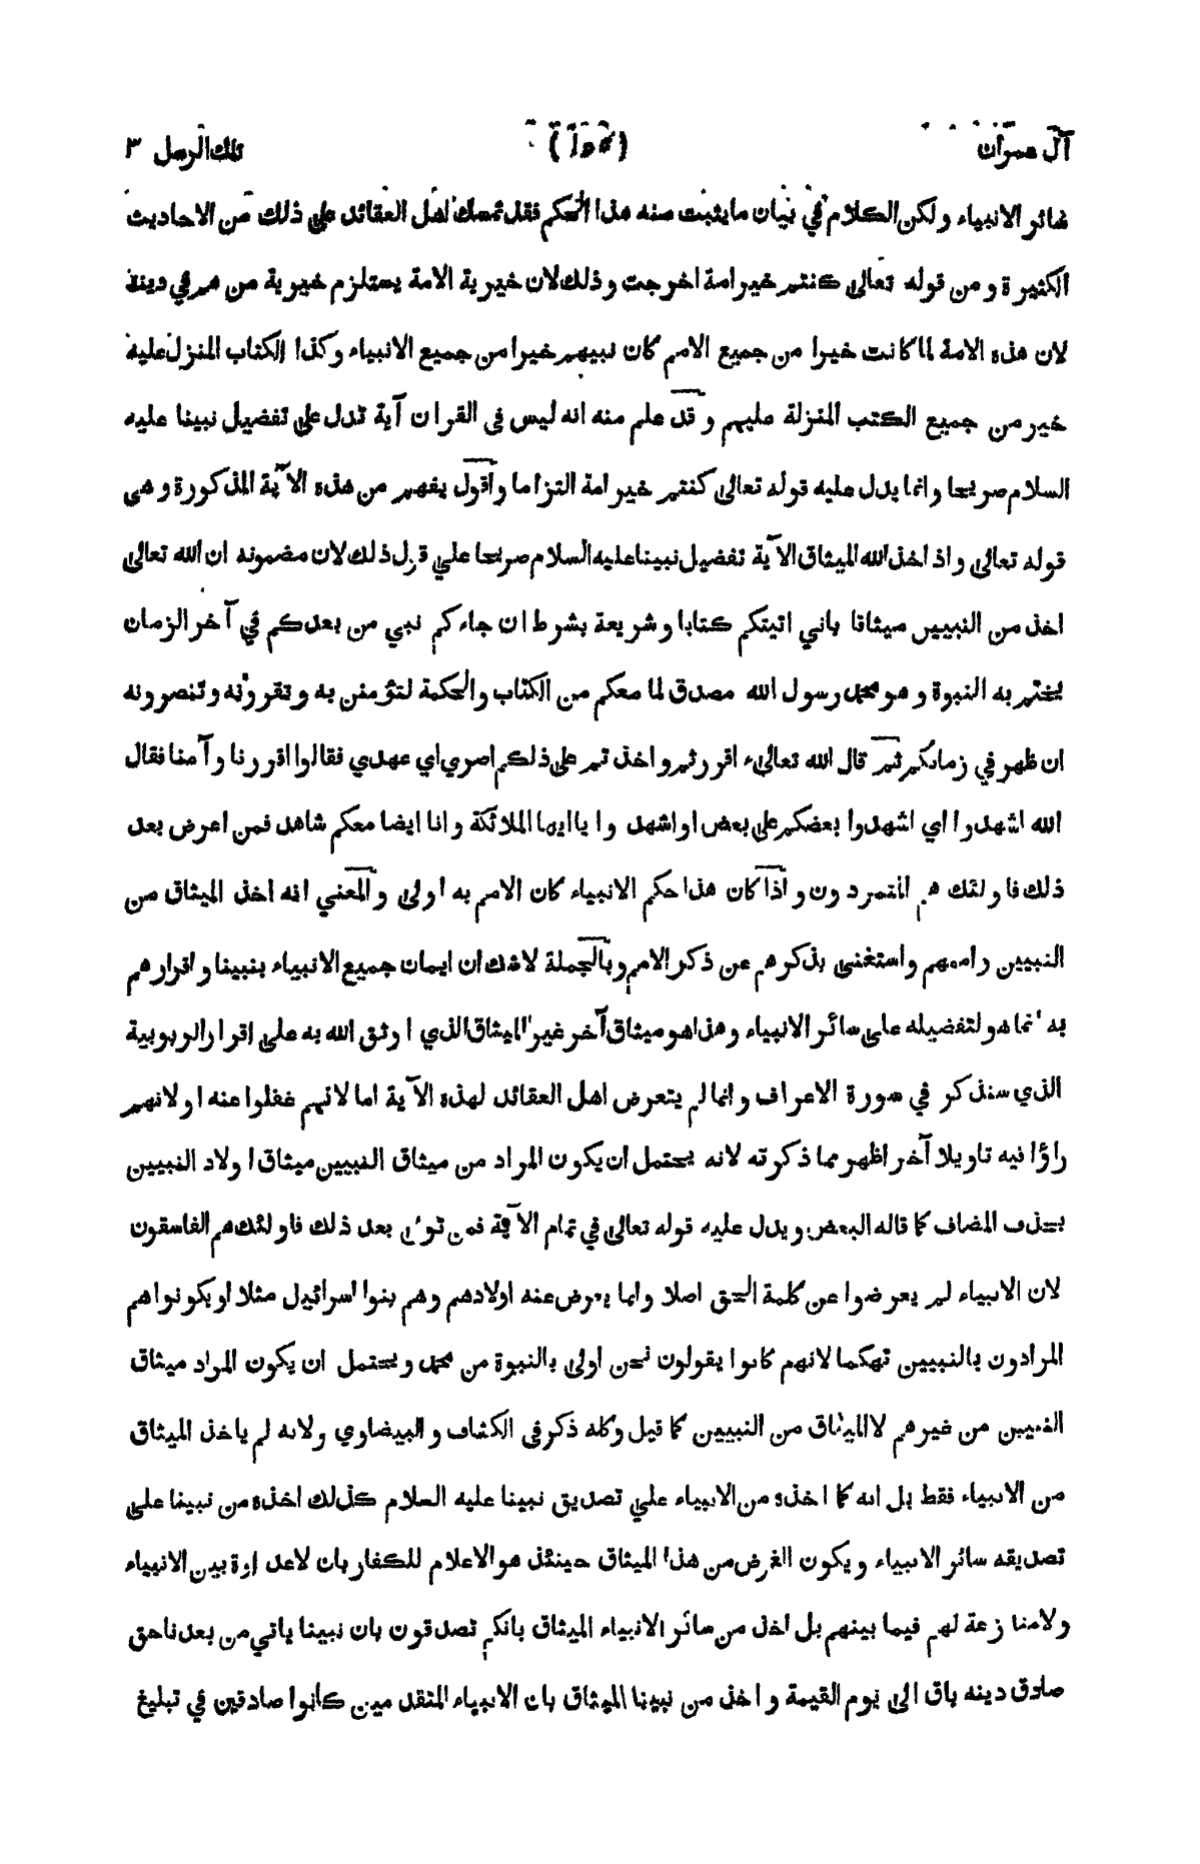 آل عمرأن (١٥٥) تلك الرسل ٣
سائر الانبياء ولكن الكلام في بيان مايثبت منه هذا الحكم فقد تمسك اهل العقائد على ذلك من الاحاديث
الكثيرة ومن قوله تعالى كنتم خير امة اخرجت وذلك لان خيرية الامة يستلزم خيرية من هم في دينه
لان هذه الامة لما كانت خيرا من جميع الامم كان نبيهم خيرا من جميع الانبياء وكذا الكتاب المنزل عليه
خير من جميع الكتب المنزلة عليهم وقد علم منه انه ليس فى القران آية تدل على تفضيل نبينا عليه
السلام صريحا وانما يدل عليه قوله تعالى كنتم خير امة التزاما واقول يفهم من هذه الآية المذكورة وهى
قوله تعالى واذ اخذ الله الميثاق الآية تفضيل نبينا عليه السلام صريحا علي قول ذلك لان مضمونه ان الله تعالى
اخذ من النبيين ميثاقا باني اتيتكم كتابا وشريعة بشرط ان جاءكم نبي من بعدكم في آخر الزمان
يختم به النبوة وهو محمد رسول الله مصدق لما معكم من الكتاب والحكمة لتؤمنن به وتقرونه وتنصرونه
ان ظهر في زمانكم ثم قال الله تعالىء اقررتم واخذ تم على ذلكم اصري اي عهدي فقالوا اقررنا وآمنا فقال
الله اشهدوا اي اشهدوا بعضكم على بعض او اشهد وا يا ايها الملائكة وانا ايضا معكم شاهد فمن اعرض بعد
ذلك فاولئك هم المتمردون واذا كان هذا حكم الانبياء كان الامم به اولى والمعني انه اخذ الميثاق من
النبيين واممهم واستغنى بذكرهم عن ذكر الامم وبالجملة لاشك ان ايمان جميع الانبياء بنبينا واقرارهم
به انما هو لتفضيله على سائر الانبياء وهذا هو ميثاق آخر غير الميثاق الذي اوثق الله به على اقرار الربوبية
الذي سنذكر في سورة الاعراف وانما لم يتعرض اهل العقائد لهذه الآية اما لانهم غفلوا عنه اولانهم
راؤا فيه تاويلا آخر اظهر مما ذكرته لانه يحتمل ان يكون المراد من ميثاق النبيين ميثاق اولاد النبيين
بحذف المضاف كما قاله البعض ويدل عليه قوله تعالى في تمام الآية فمن تولى بعد ذلك فاولئك هم الفاسقون
لان الانبياء لم يعرضوا عن كلمة الحق اصلا وانما يعرض عنه اولادهم وهم بنوا اسرائيل مثلا اويكونوا هم
المرادون بالنبيين تهكما لانهم كانوا يقولون نحن اولى بالنبوة من محمد ويحتمل ان يكون المراد ميثاق
النبيين من غيرهم لا الميثاق من النبيين كما قيل وكله ذكر فى الكشاف والبيضاوي ولانه لم ياخذ الميثاق
من الانبياء فقط بل انه كما اخذه من الانبياء علي تصديق نبينا عليه السلام كذلك اخذه من نبينا على
تصديقه سائر الانبياء ويكون الغرض من هذا الميثاق حينئذ هو الاعلام للكفار بان لاعداوة بين الانبياء
ولامنازعة لهم فيما بينهم بل اخذ من سائر الانبياء الميثاق بانكم تصدقون بان نبينا ياتي من بعدنا حق
صادق دينه باق الى يوم القيمة واخذ من نبينا الميثاق بان الانبياء المتقدمين كانوا صادقين في تبليغ